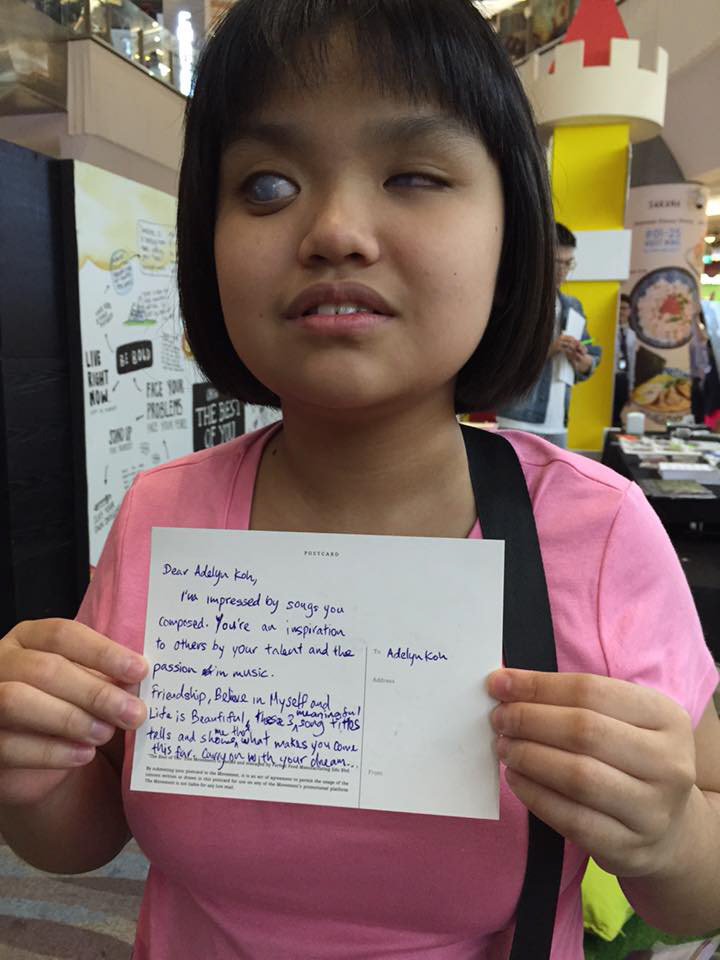 POSTCARD
Dear Adelyn Koh,
I'm impressed by songs you
composed. You're an inspiration
to others by your talent and the
passion in music.
Friendship, Believe in Myself and
Life is Beautiful, these 3 meaningful song titles
tells and shows me that what makes you come
this far. Carry on with your dream...
To Adelyn Koh
Address
From
By submitting your postcard to the Movement, it is an act of agreement to permit the usage of the
content written or drawn in this postcard for use on any of the Movement's promotional platform
The Movement is not liable for any lost mail.
LIVE
RIGHT
NOW.
BE BOLD
FACE YOUR
PROBLEMS
STAND UP
THE BEST
OF YOU
SAKANA
#01-25